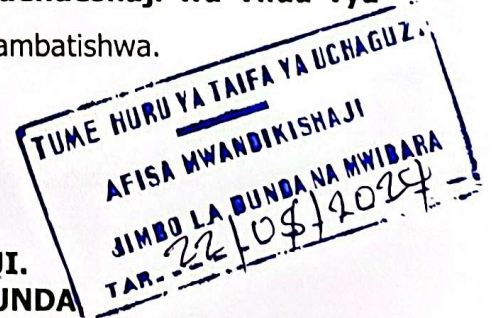 ambatishwa.
TUME HURU YA TAIFA YA UCHAGUZI.
AFISA MWANDIKISHAJI
JIMBO LA BUNDA NA MWIBARA
TAR. 22/08/2024
JI.
UNDA